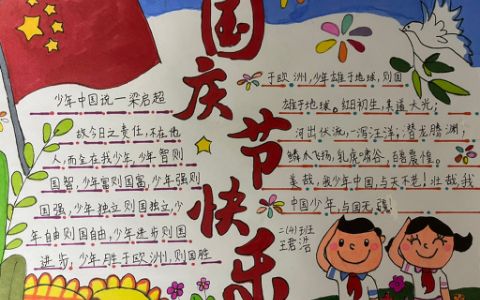 国庆节快乐
少年中国说一梁启超
故今日之责任,不在他
人,而全在我少年,少年智则
国智,少年富则国富,少年强则
国强,少年独立则国独立,少
年自由则国自由,少年进步则国
进步,少年胜于欧洲,则国胜
于欧洲,少年雄于地球,则国
雄于地球。红日初生,其道大光;
河出伏流,一泻汪洋;潜龙腾渊,
鳞爪飞扬,乳虎啸谷,百兽震惶。
美哉,我少年中国,与天不老!壮哉,我
中国少年,与国无疆!
二(4)班
王君浩